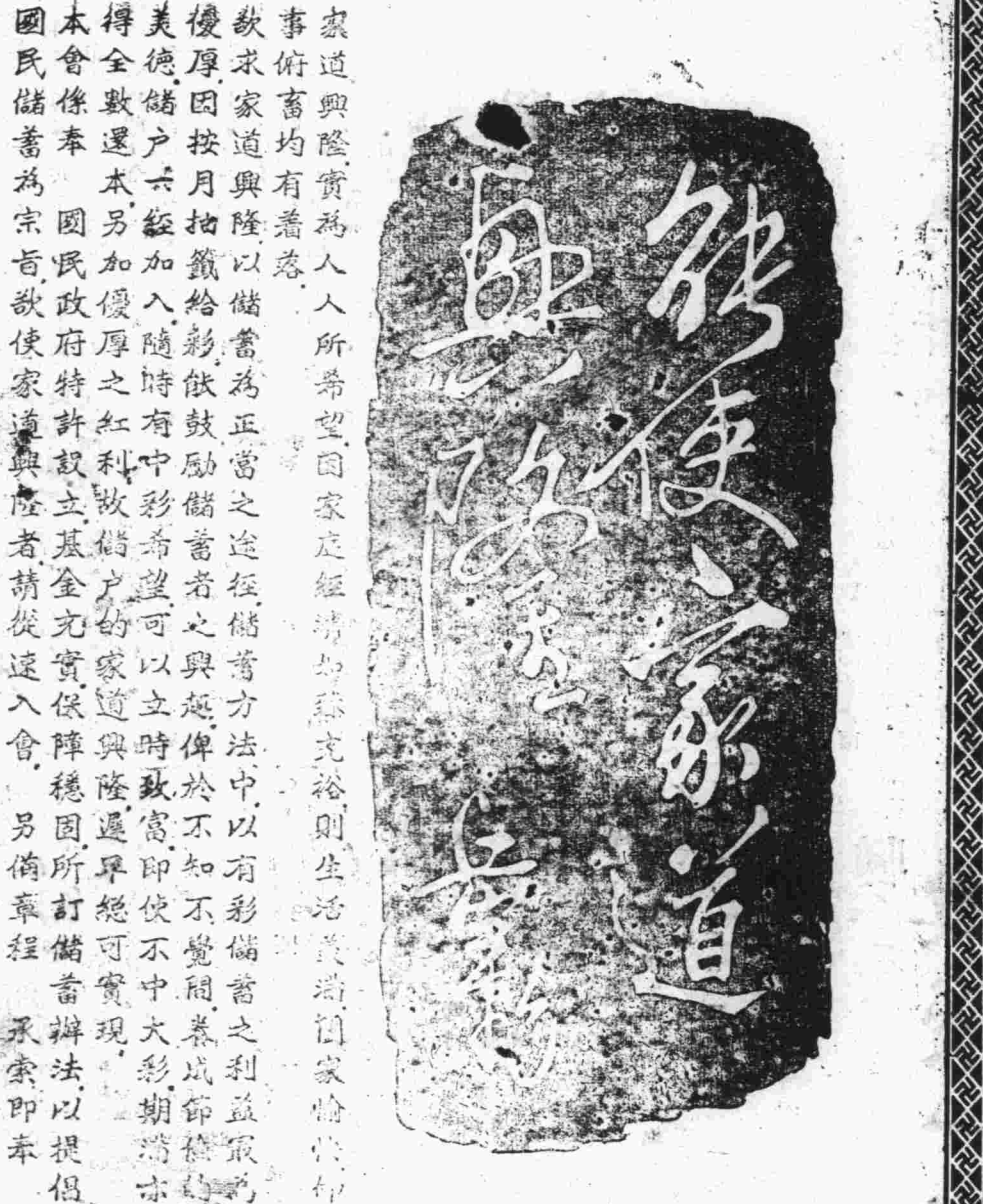 能使家道
興隆
家道興隆.實為人人所希望.因家庭經濟如能充裕.則生活美滿.闔家愉快.仰
事俯畜均有着落.
欲求家道興隆.以儲蓄為正當之途徑.儲蓄方法中.以有彩儲蓄之利益最為
優厚.因按月抽籤給彩.能鼓勵儲蓄者之興趣.俾於不知不覺間.養成節儉的
美德.儲户一經加入.隨時有中彩希望.可以立時致富.即使不中大彩.期滿亦
得全數還本.另加優厚之紅利.故儲户的家道興隆.遲早總可實現.
本會係奉 國民政府特許設立.基金充實.保障穩固.所訂儲蓄辦法.以提倡
國民儲蓄為宗旨.欲使家道興隆者.請從速入會. 另備章程 承索即奉